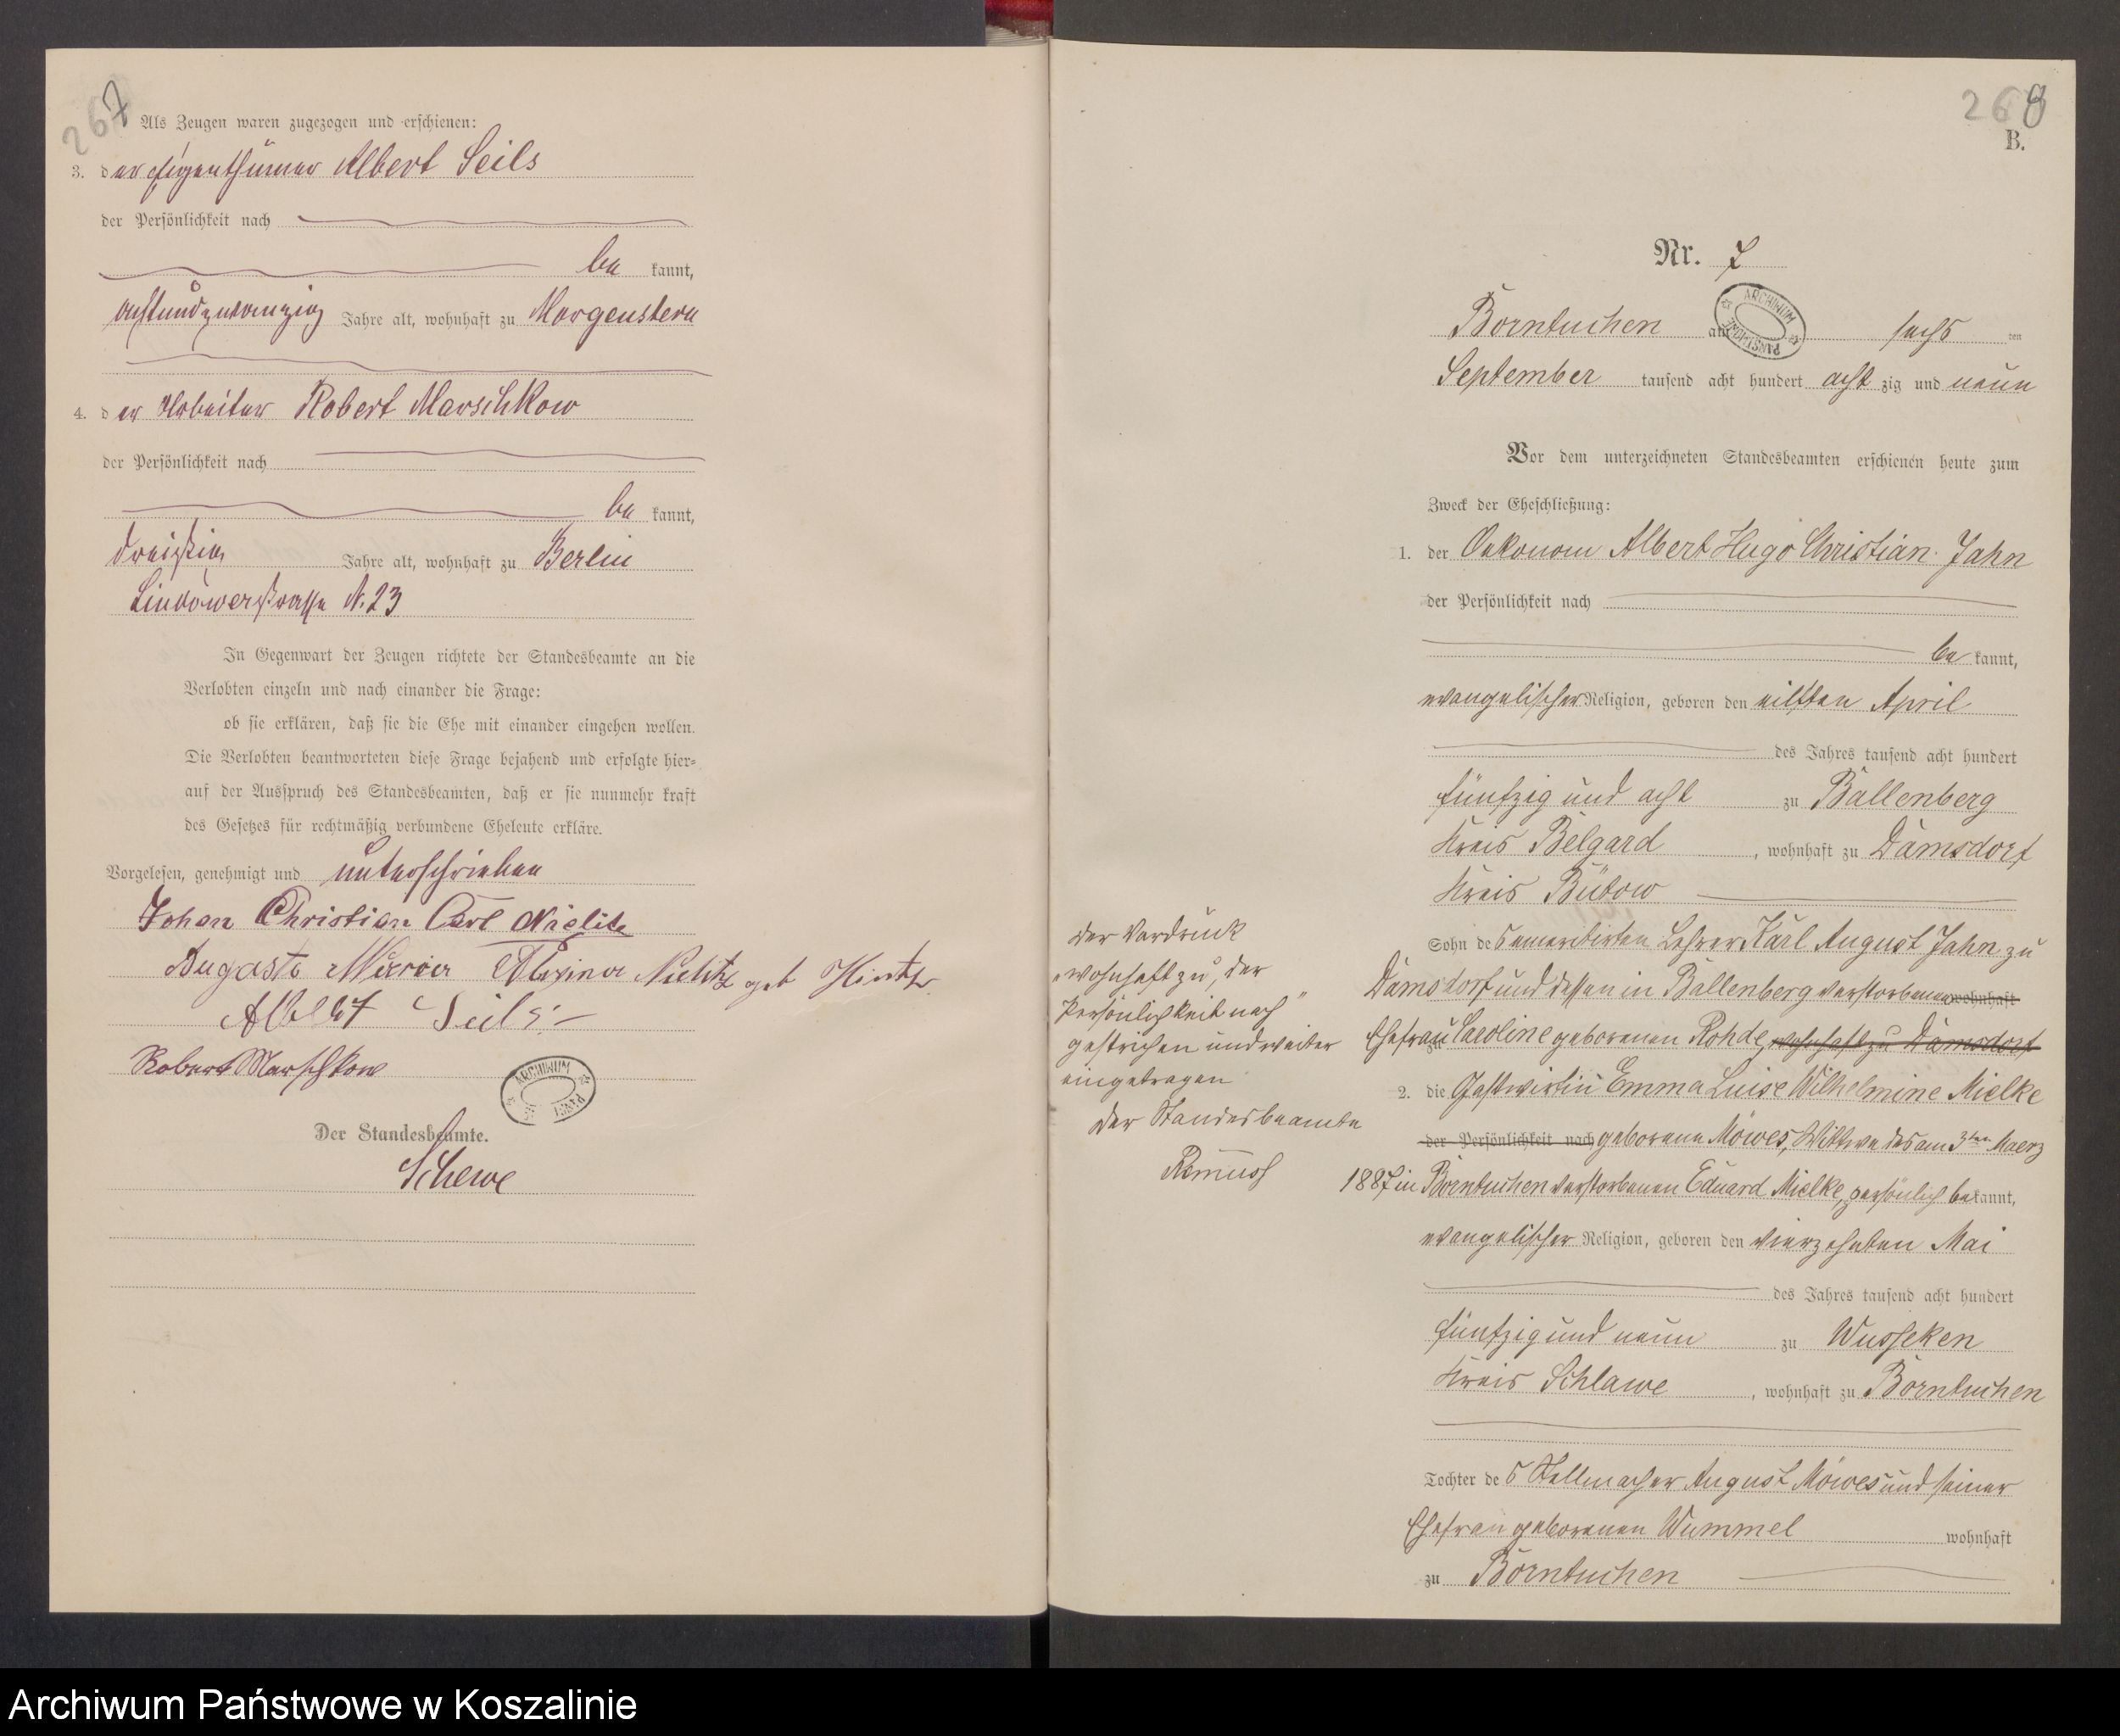 267
Als Zeugen waren zugezogen und erschienen:
3. der Eigenthümer Albert Seils
der Persönlichkeit nach
be kannt,
achtundzwanzig Jahre alt, wohnhaft zu Morgenstern
4. der Arbeiter Robert Marschkow
der Persönlichkeit nach
be kannt,
dreißig Jahre alt, wohnhaft zu Berlin
Lindowerstrasse N. 23
In Gegenwart der Zeugen richtete der Standesbeamte an die
Verlobten einzeln und nach einander die Frage:
ob sie erklären, daß sie die Ehe mit einander eingehen wollen.
Die Verlobten beantworteten diese Frage bejahend und erfolgte hier-
auf der Ausspruch des Standesbeamten, daß er sie nunmehr kraft
des Gesetzes für rechtmäßig verbundene Eheleute erkläre.
Vorgelesen, genehmigt und unterschrieben
Johan Christian Carl Nielitz
Auguste Nielitz geb Hintz
Albert Seils
Robert Marschkow
ARCHIWUM PAŃST
Der Standesbeamte.
Schewe
268
B.
Nr. 7
ARCHIWUM PAŃSTWOWE
Borntuchen am sechs ten
September tausend acht hundert acht zig und neun
Vor dem unterzeichneten Standesbeamten erschienen heute zum
Zweck der Eheschließung:
1. der Oekonom Albert Hugo Christian Jahn
der Persönlichkeit nach
be kannt,
evangelischer Religion, geboren den eilften April
des Jahres tausend acht hundert
fünfzig und acht zu Ballenberg
Kreis Belgard, wohnhaft zu Damsdorf
Kreis Bütow
Sohn des emeritirten Lehrer Karl August Jahn zu
Damsdorf und dessen in Ballenberg verstorbenen wohnhaft
zu Ehefrau Caroline geborenen Rohde, wohnhaft zu Damsdorf
2. die Gastwirtin Emma Luise Wilhelmine Mielke
der Persönlichkeit nach geborene Möwes, Wittwe des am 3ten Maerz
1887 in Borntuchen verstorbenen Eduard Mielke, persönlich bekannt,
evangelischer Religion, geboren den vierzehnten Mai
des Jahres tausend acht hundert
fünfzig und neun zu Wusseken
Kreis Schlawe, wohnhaft zu Borntuchen
Tochter des Stellmacher August Möwes und seiner
Ehefrau geborenen Wummel wohnhaft
zu Borntuchen
der Vordruck
„wohnhaft zu, der
Persönlichkeit nach"
gestrichen und weiter
eingetragen
Der Standesbeamte
Archiwum Państwowe w Koszalinie